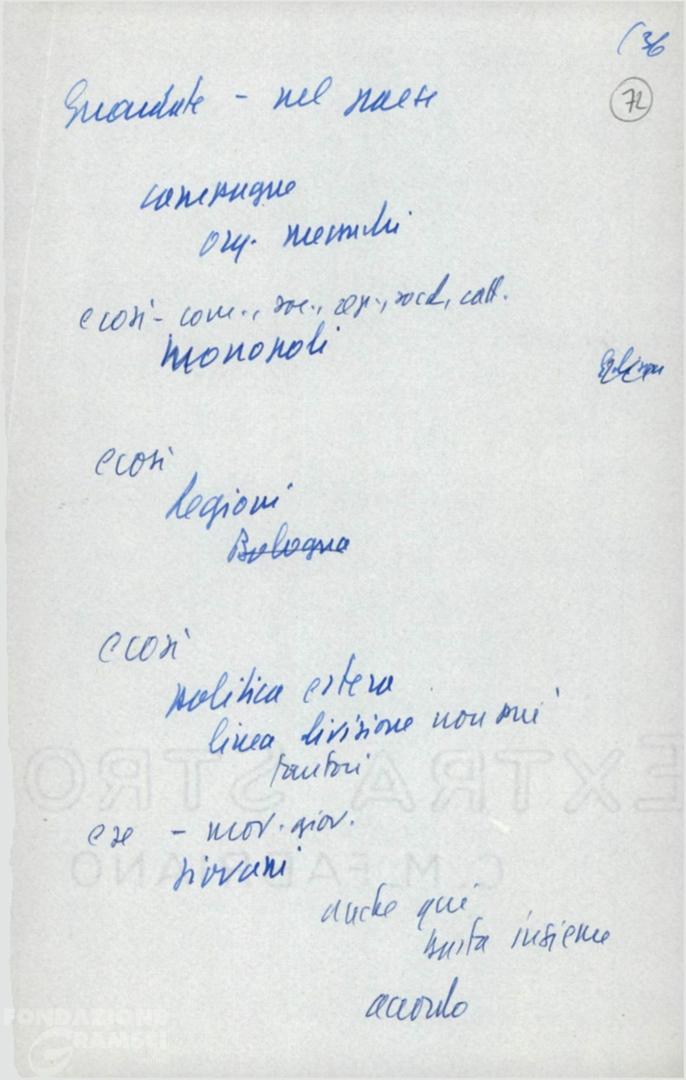 (36
72
Guardate - nel paese
campagne
org. 
e così - com., soc., rep., socd., catt.
Monopoli
e così
Regioni
Bologna
e così
politica estera
linea divisione non più
fautori
ese - mov. giov.
giovani
anche qui
insieme
accordo
EXTRA STRO
C.M. FABRIANO
FONDAZIONE
GRAMSCI